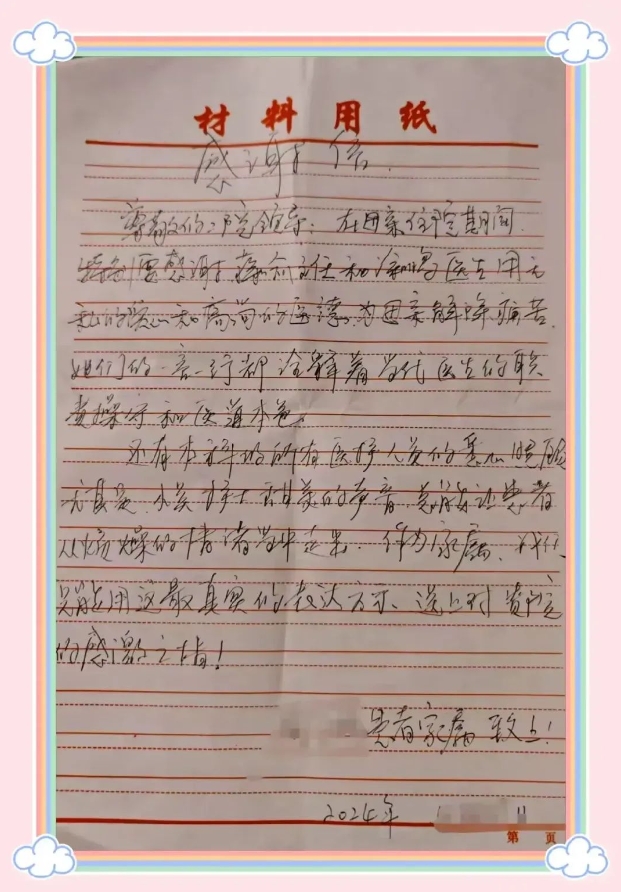 材料用纸
感谢信.
尊敬的 院领导：在母亲住院期间
特别要感谢 主任和 医生用无
私的爱心和高尚的医德为母亲解除痛苦.
她们的一言一行都诠释着当代医生的职
责操守和医道本色。
还有本科的所有医护人员的悉心照顾
尤其是 护士甜美的声音总能让患者
从烦燥的情绪当中走出来. 作为家属.
只能用这最真实的表达方式、送上对贵院
的感激之情！
患者家属 致上！
2024年 11
第 页